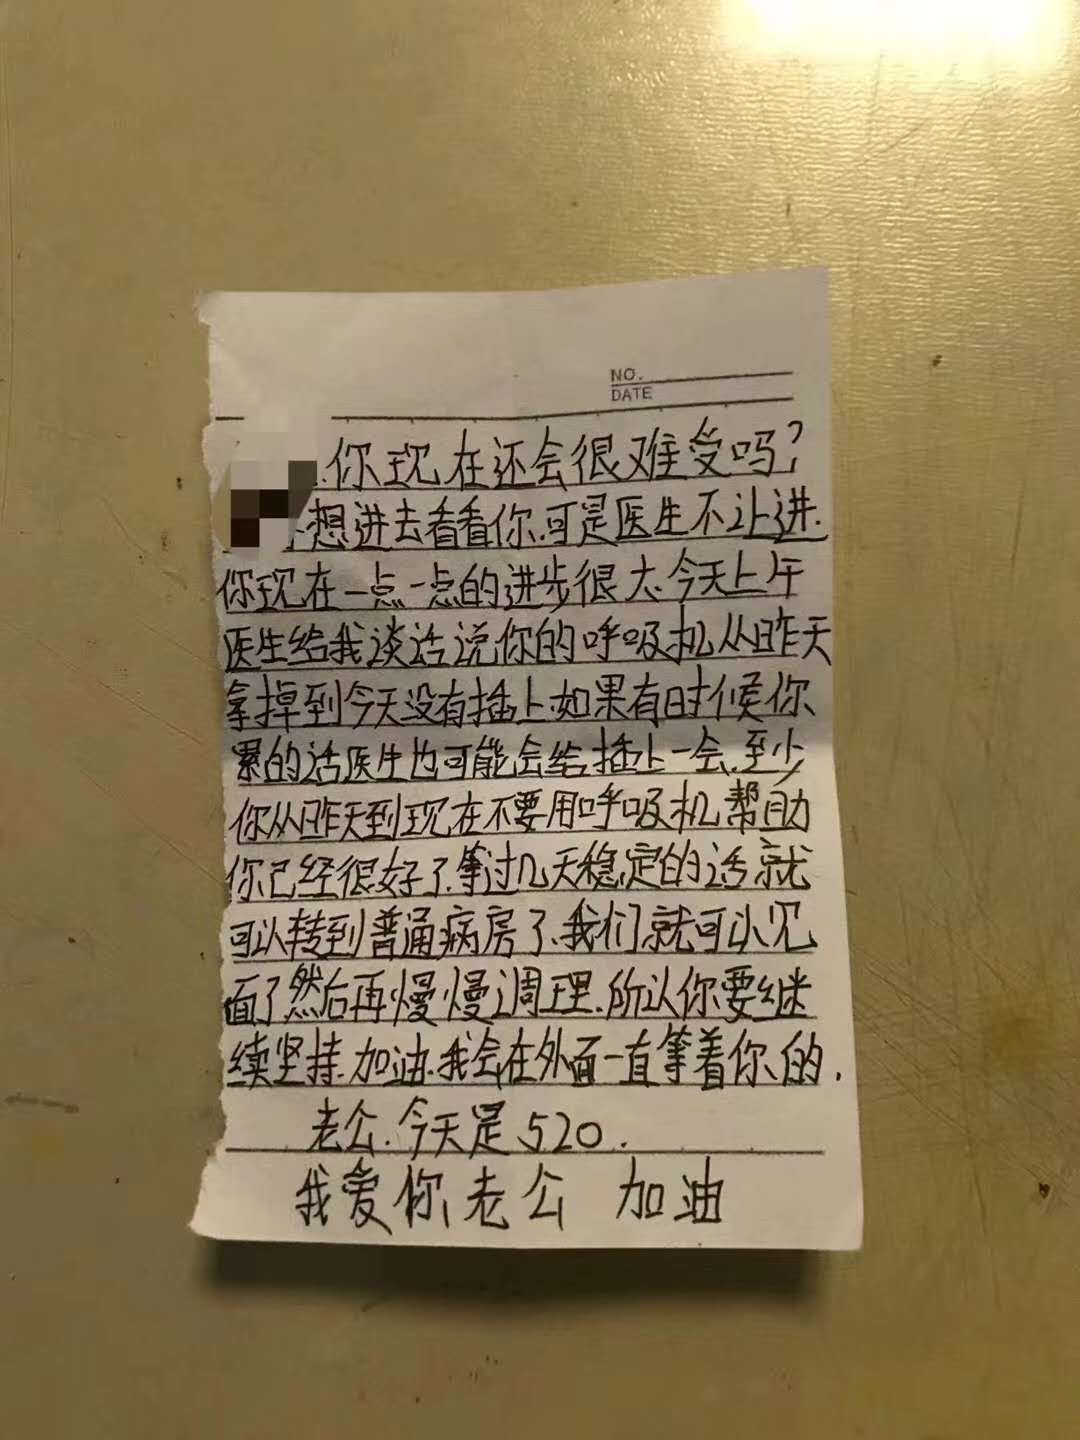 NO.
DATE
你现在还会很难受吗？
想进去看看你.可是医生不让进.
你现在一点一点的进步很大.今天上午
医生给我谈话说你的呼吸机从昨天
拿掉到今天没有插上.如果有时候你
累的话医生也可能会给插上一会.至少
你从昨天到现在不要用呼吸机帮助
你已经很好了.等过几天稳定的话就
可以转到普通病房了.我们就可以见
面了然后再慢慢调理.所以你要继
续坚持.加油.我会在外面一直等着你的.
老公.今天是520.
我爱你老公 加油